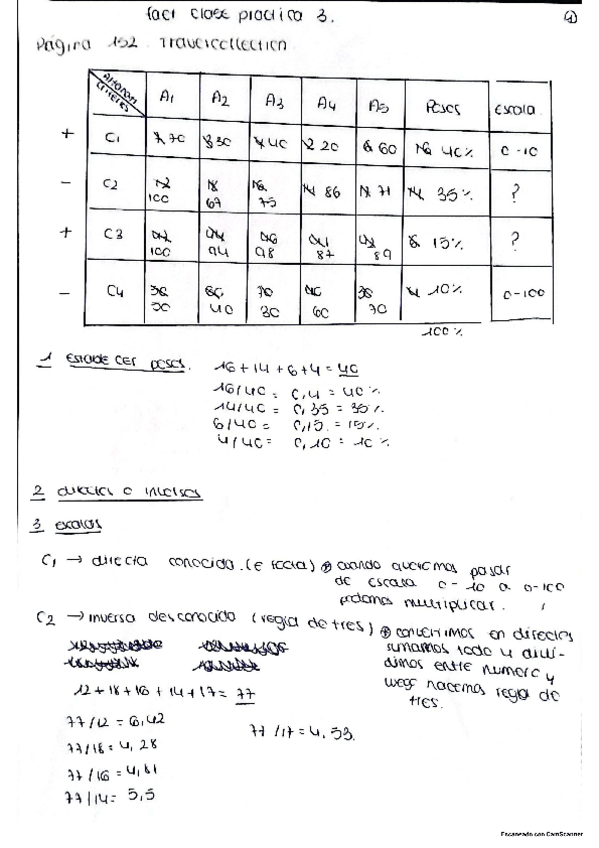 fact clase practica 3.
Pagina 152. Travercollection
Alternan Criterios A1 A2 A3 A4 A5 Pesos escala
+ C1 7 70 3 30 4 40 2 20 6 60 16 40% 0-10
- C2 12 100 18 67 16 75 14 86 17 71 14 35% ?
+ C3 100 94 98 87 89 6 15% ?
- C4 50 40 70 30 60 30 70 4 10% 0-100
100%
1 ESTABLECER pesos. 16+14+6+4=40
16/40= 0,4 = 40%
14/40= 0,35 = 35%
6/40= 0,15 = 15%
4/40= 0,10 = 10%
2 directos o inversos
3 escalas
C1 → directa conocida. cuando queremos pasar
de escala 0-10 a 0-100
podemos multiplicar.
C2 → inversa desconocida (regla de tres) convertimos en directos
sumamos todo y divi-
dimos entre numero y
luego hacemos regla de
tres.
12+18+16+14+17=77
77/12 = 6,42
77/17=4,53.
77/18=4,28
77/16=4,81
77/14= 5,5
Escaneado con CamScanner